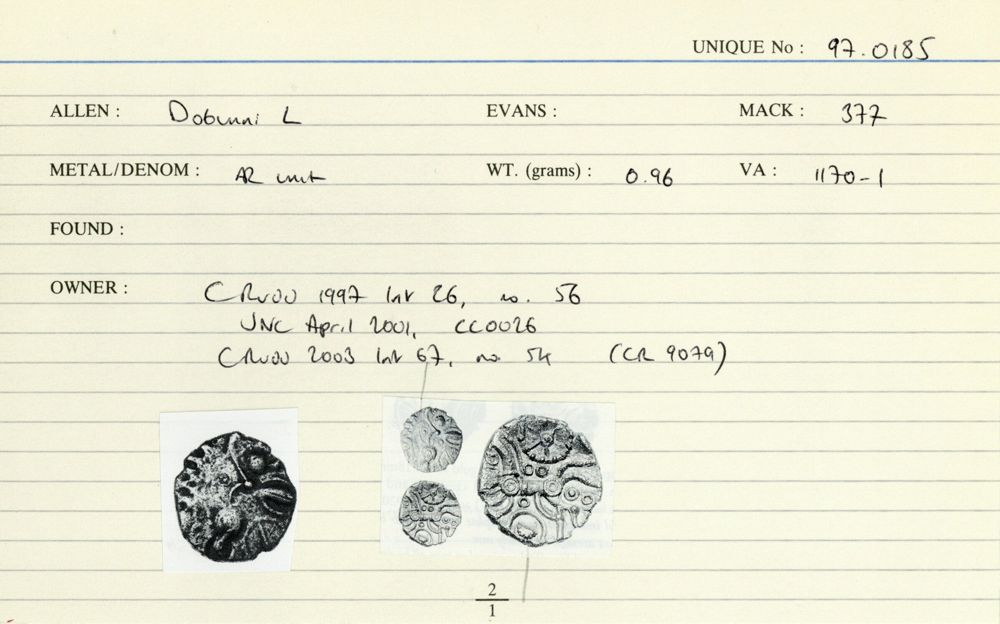 UNIQUE No : 97.0185
ALLEN : Dobunni L EVANS : MACK : 377
METAL/DENOM : AR unit WT. (grams) : 0.96 VA : 1170-1
FOUND :
OWNER : CRuvu 1997 list 26, no. 56
JNC April 2001, CC0026
CRuvu 2003 list 67, no 54 (CR 9079)
2
1